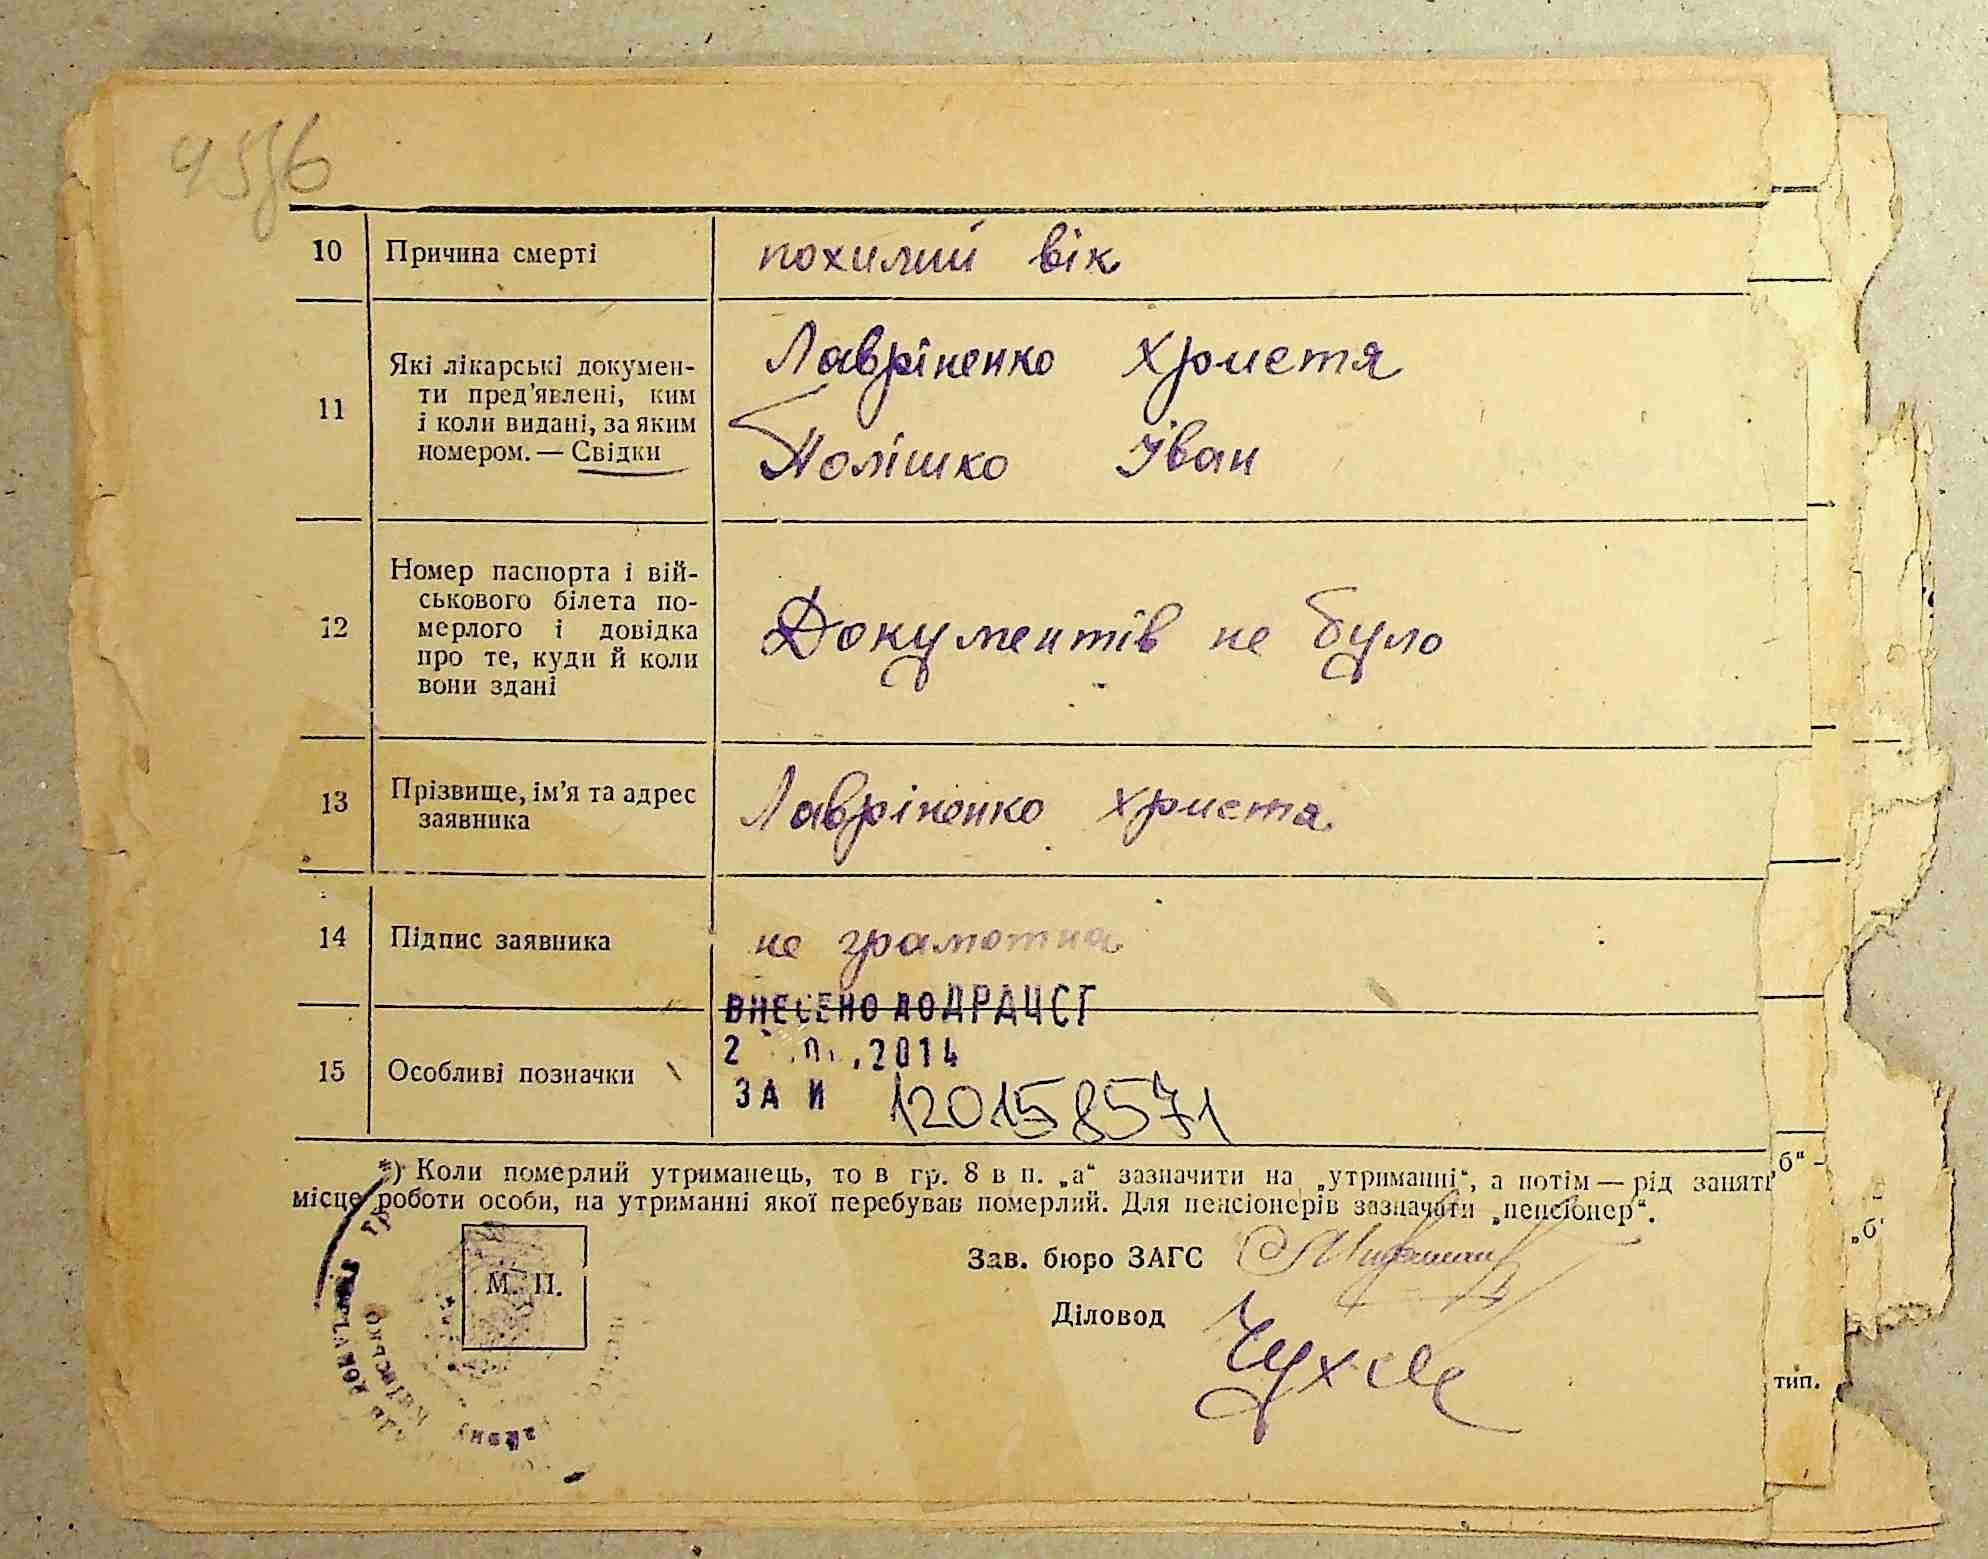 10 Причина смерті похилий вік
11 Які лікарські докумен-
ти пред'явлені, ким
і коли видані, за яким
номером. — Свідки
Лавріненко Христя
Поліщко Іван
12 Номер паспорта і вій-
ськового білета по-
мерлого і довідка
про те, куди й коли
вони здані
Документів не було
13 Прізвище, ім'я та адрес
заявника
Лавріненко Христа
14 Підпис заявника не грамотна
ВНЕСЕНО ДО ДРАЦСГ
2 2014
15 Особливі позначки
ЗА И 120158571
*) Коли померлий утриманець, то в гр. 8 в п. „а“ зазначити на „утриманні“, а потім — рід занят
місце роботи особи, на утриманні якої перебував померлий. Для пенсіонерів зазначати „пенсіонер“.
б“
„б
М. П.
Зав. бюро ЗАГС
Діловод
тип.